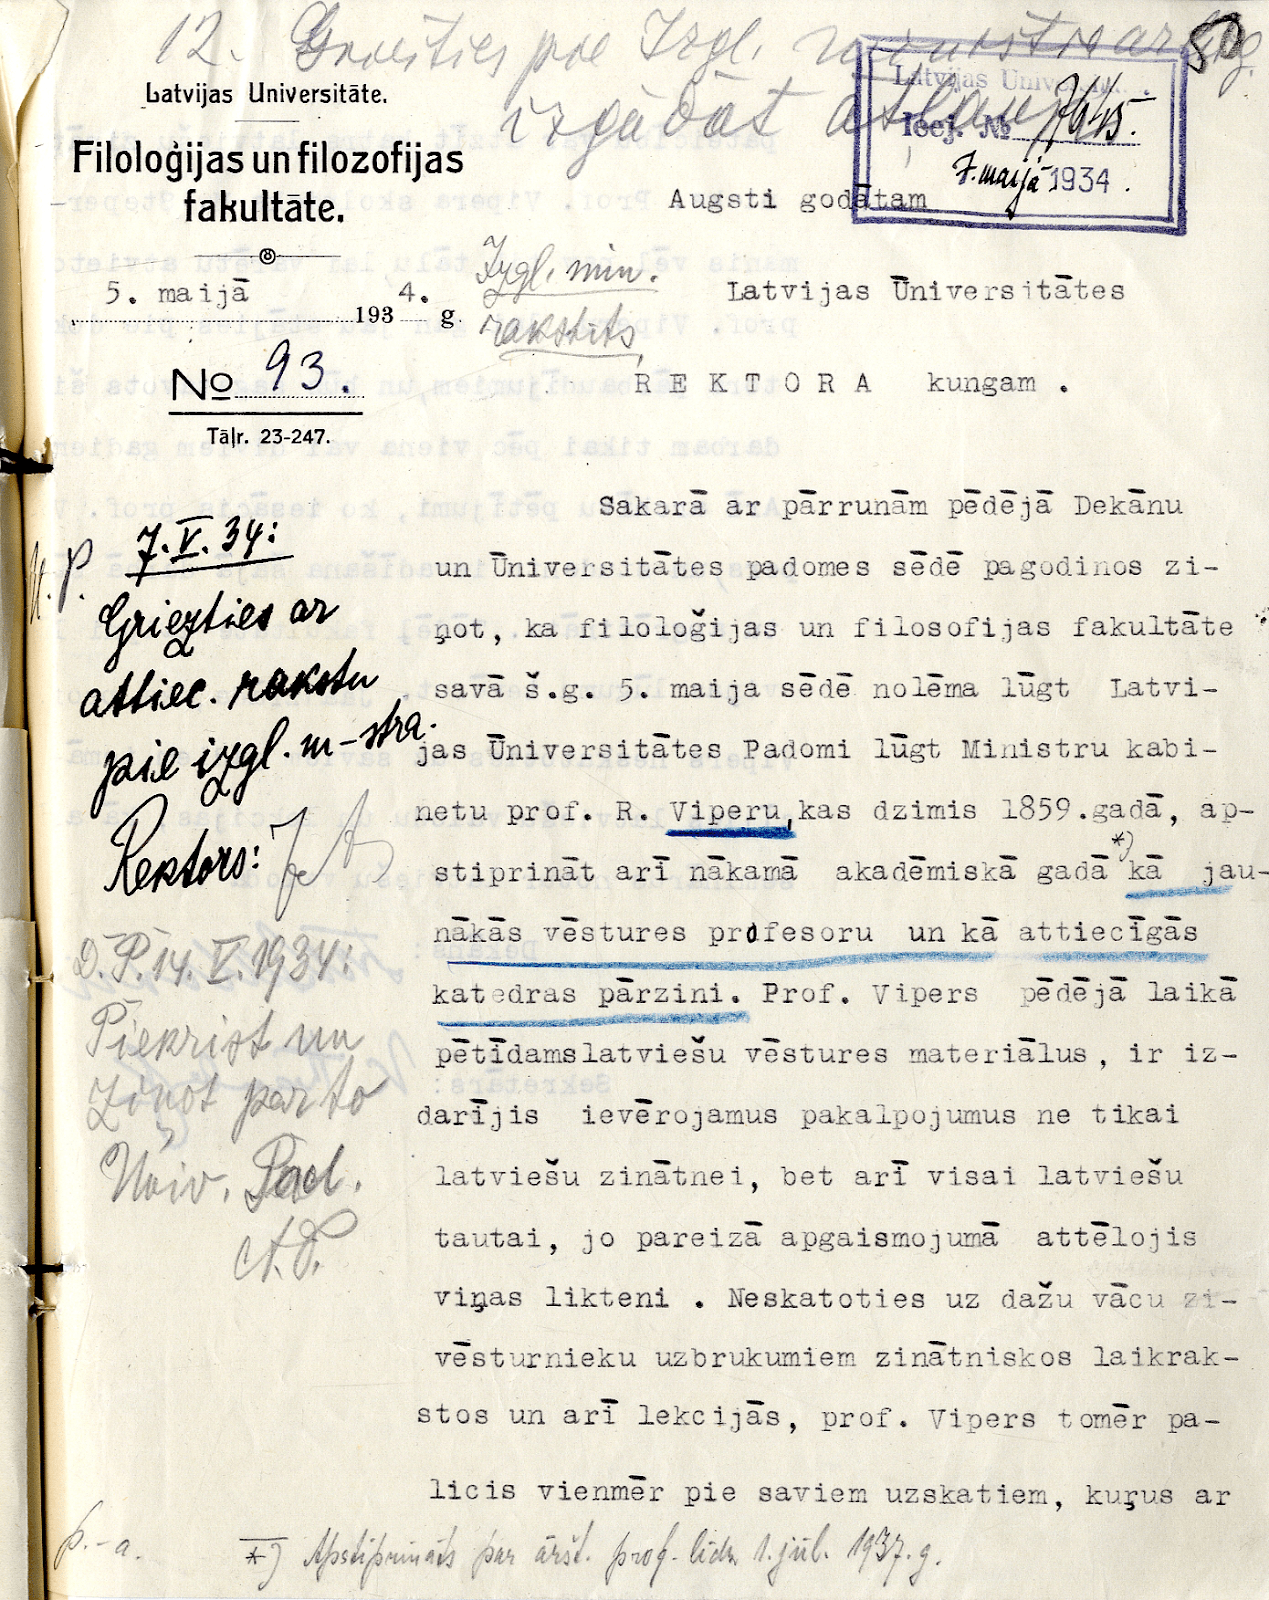 12. Griezties pie Izgl. ministra ar lūg.
izgādāt atļauju
80
Latvijas Universitāte.
Filoloģijas un filozofijas
fakultāte.
5. maijā 1934. g.
No 93.
Tāļr. 23-247.
Latvijas Univers
Ieej. №
7. maijā 1934.
Izgl. min.
rakstīts
Augsti godātam
Latvijas Ūniversitātes
REKTORA kungam.
7.V.34:
Griezties ar
attiec. rakstu
pie izgl. m-stra.
Rektors:
D.P. 14.V.1934:
Piekrist un
ziņot par to
Univ. Pad.
Sakarā ar pārrunām pēdējā Dekānu
un Ūniversitātes padomes sēdē pagodinos zi-
ņot, ka filoloğijas un filosofijas fakultāte
savā š.g. 5. maija sēdē nolēma lūgt Latvi-
jas Ūniversitātes Padomi lūgt Ministru kabi-
netu prof. R. Viperu, kas dzimis 1859.gadā, ap-
stiprināt arī nākamā akadēmiskā gadā *) kā jau-
nākās vēstures profesoru un kā attiecīgās
katedras pārzini. Prof. Vipers pēdējā laikā
pētīdamslatviešu vēstures materiālus, ir iz-
darījis ievērojamus pakalpojumus ne tikai
latviešu zinātnei, bet arī visai latviešu
tautai, jo pareizā apgaismojumā attēlojis
viņas likteni . Neskatoties uz dažu vācu zi-
vēsturnieku uzbrukumiem zinātniskos laikrak-
stos un arī lekcijās, prof. Vipers tomēr pa-
licis vienmēr pie saviem uzskatiem, kuŗus ar
p.-a.
*) Apstiprināts par āršt. prof. līdz 1. jūl. 1937. g.